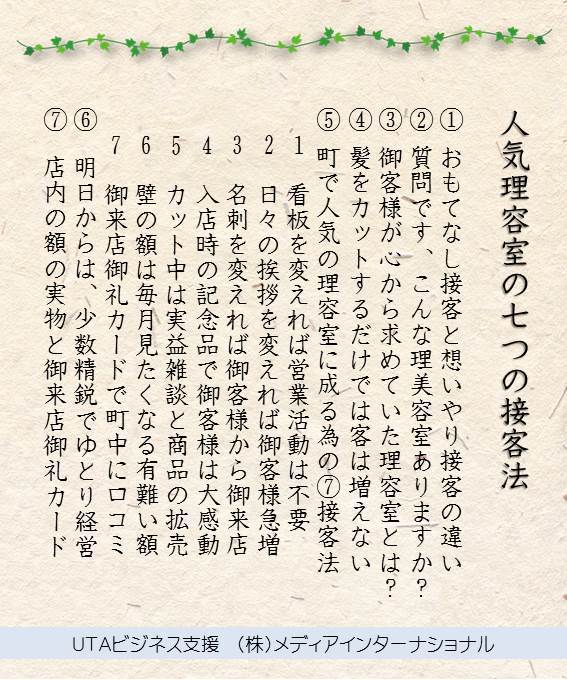 人気理容室の七つの接客法
① おもてなし接客と想いやり接客の違い
② 質問です、こんな理美容室ありますか？
③ 御客様が心から求めていた理容室とは？
④ 髪をカットするだけでは客は増えない
⑤ 町で人気の理容室に成る為の⑦接客法
1 看板を変えれば営業活動は不要
2 日々の挨拶を変えれば御客様急増
3 名刺を変えれば御客様から御来店
4 入店時の記念品で御客様は大感動
5 カット中は実益雑談と商品の拡売
6 壁の額は毎月見たくなる有難い額
7 御来店御礼カードで町中に口コミ
⑥ 明日からは、少数精鋭でゆとり経営
⑦ 店内の額の実物と御来店御礼カード
UTAビジネス支援 （株）メディアインターナショナル